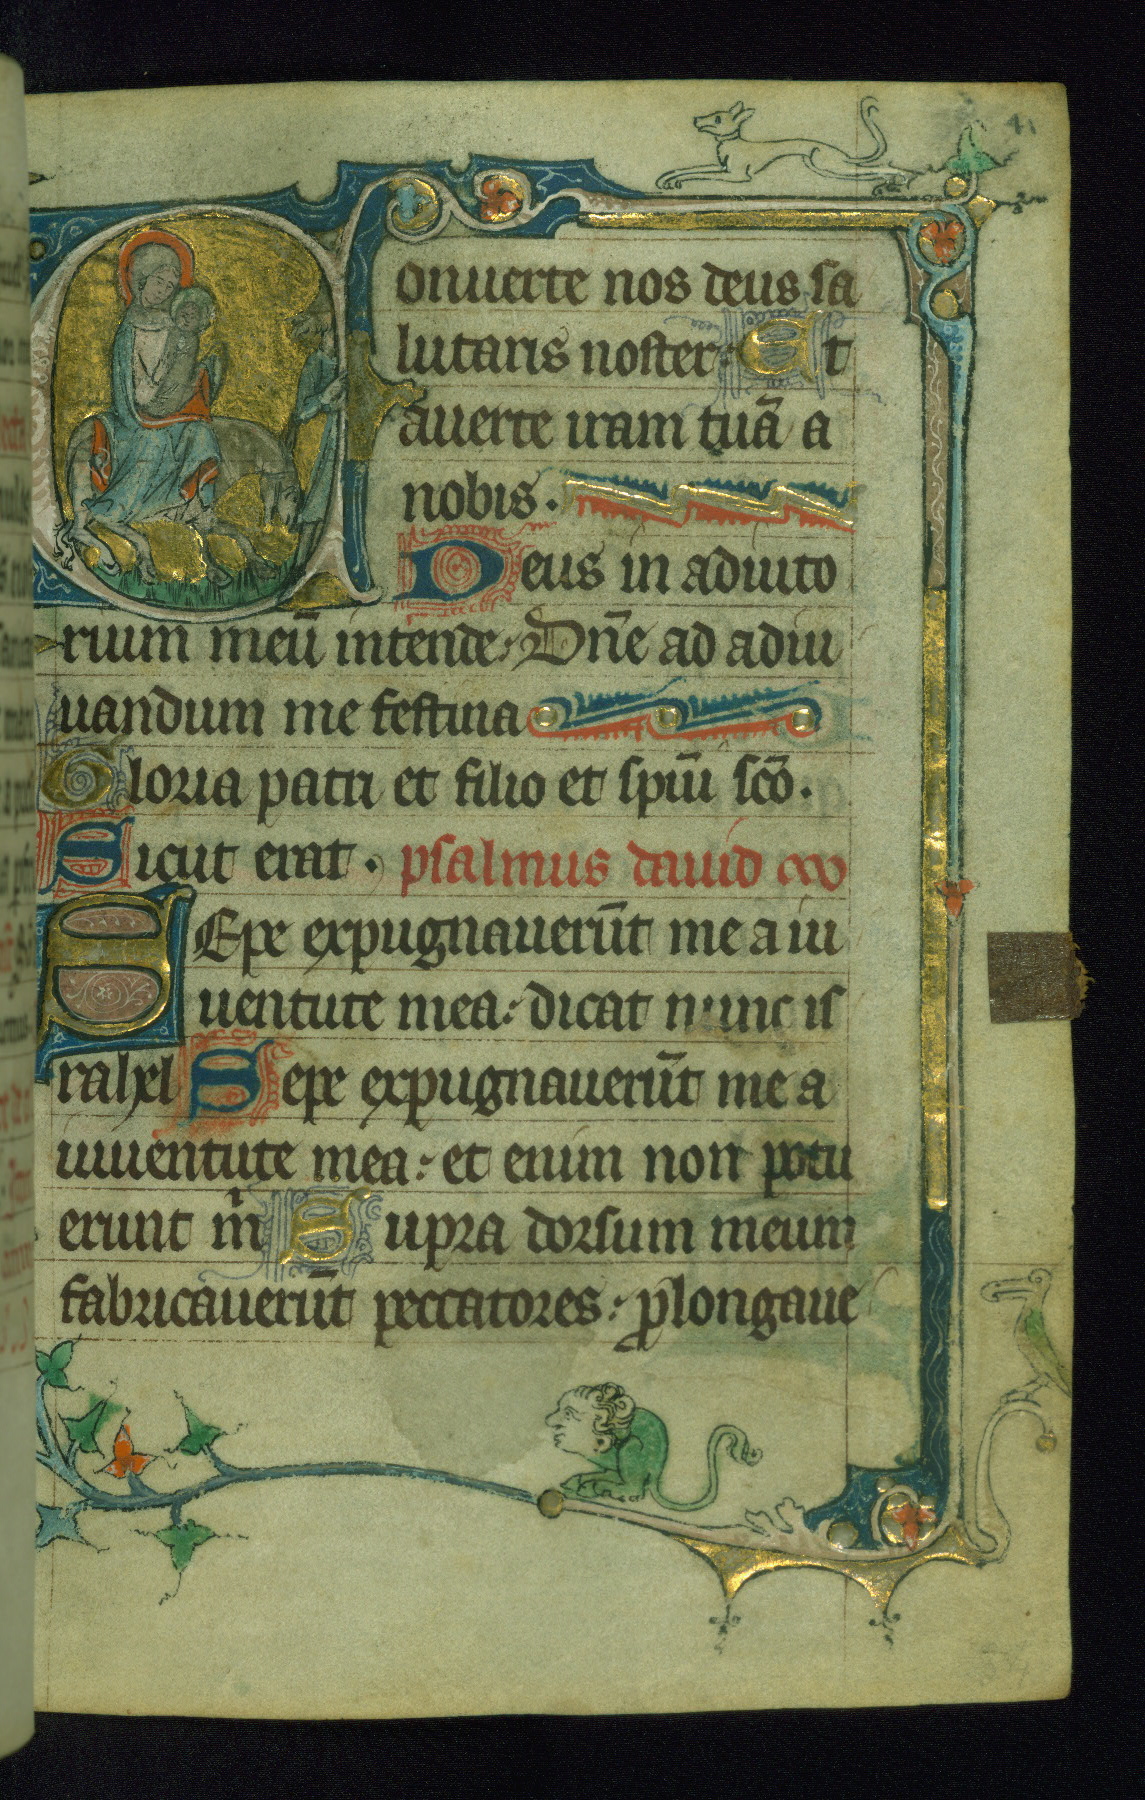 41
Conuerte nos deus sa
lutaris noster. Et
auerte iram tuā a
nobis.
Deus in adiuto
rium meū intende. Dn̄e ad adiu
uandum me festina
Gloria patri et filio et spiu̅ sc̄o.
Sicut erat. psalmus dauid
SEpe expugnauerūt me a iu
uentute mea: dicat nunc is
rahel Sepe expugnauerūt me a
iuuentute mea: et enim non potu
erunt m̄ Supra dorsum meum
fabricauerūt peccatores: ꝓlongaue